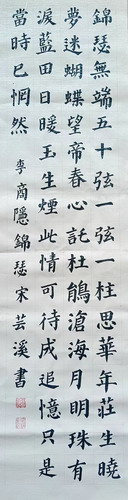 錦瑟無端五十弦一弦一柱思華年莊生曉
夢迷蝴蝶望帝春心託杜鵑滄海月明珠有
淚藍田日暖玉生煙此情可待成追憶只是
當時已惘然
李商隱錦瑟宋芸溪書